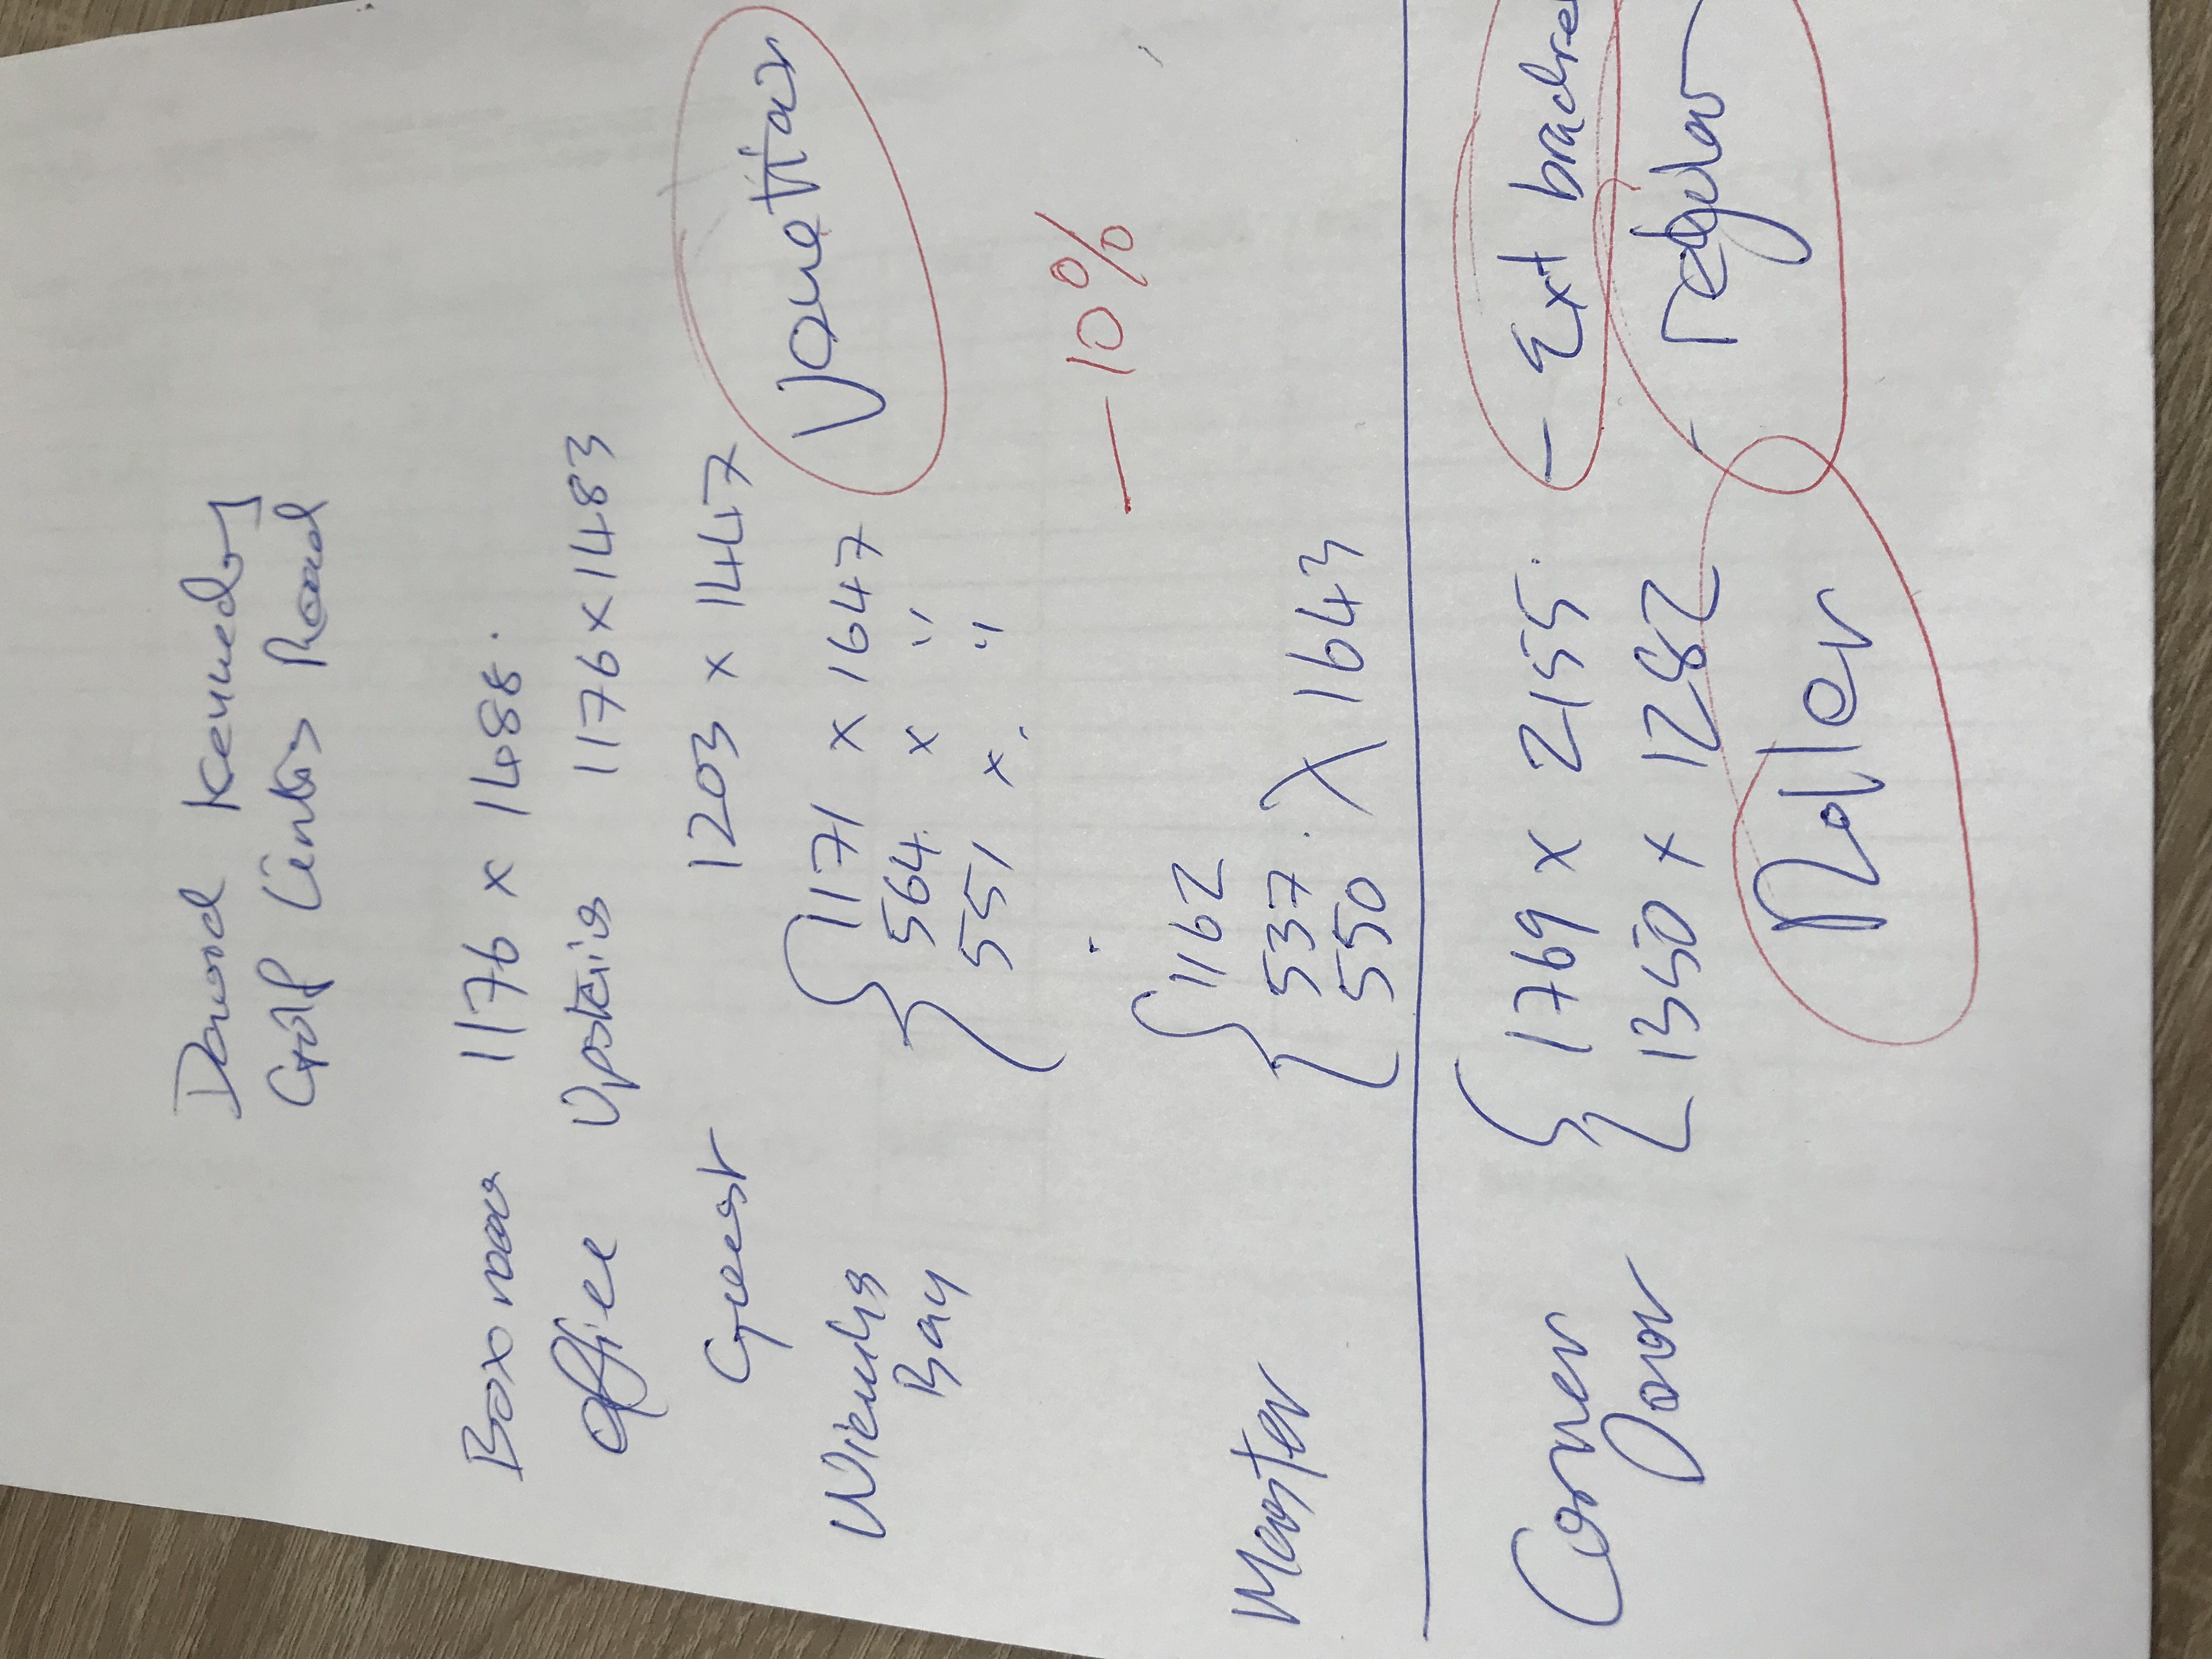 David Kennedy
Golf Links Road
Box room 1176 x 1488.
Office Upstairs 1176 x 1483
Guest 1203 x 1447
Venetian
{ 1171 x 1647
Bay 564 x "
551 x "
- 10%
Master { 1162
537 x 1643
550
Corner { 1769 x 2155. - Ext
Door 1350 x 1282 - regular
Roller